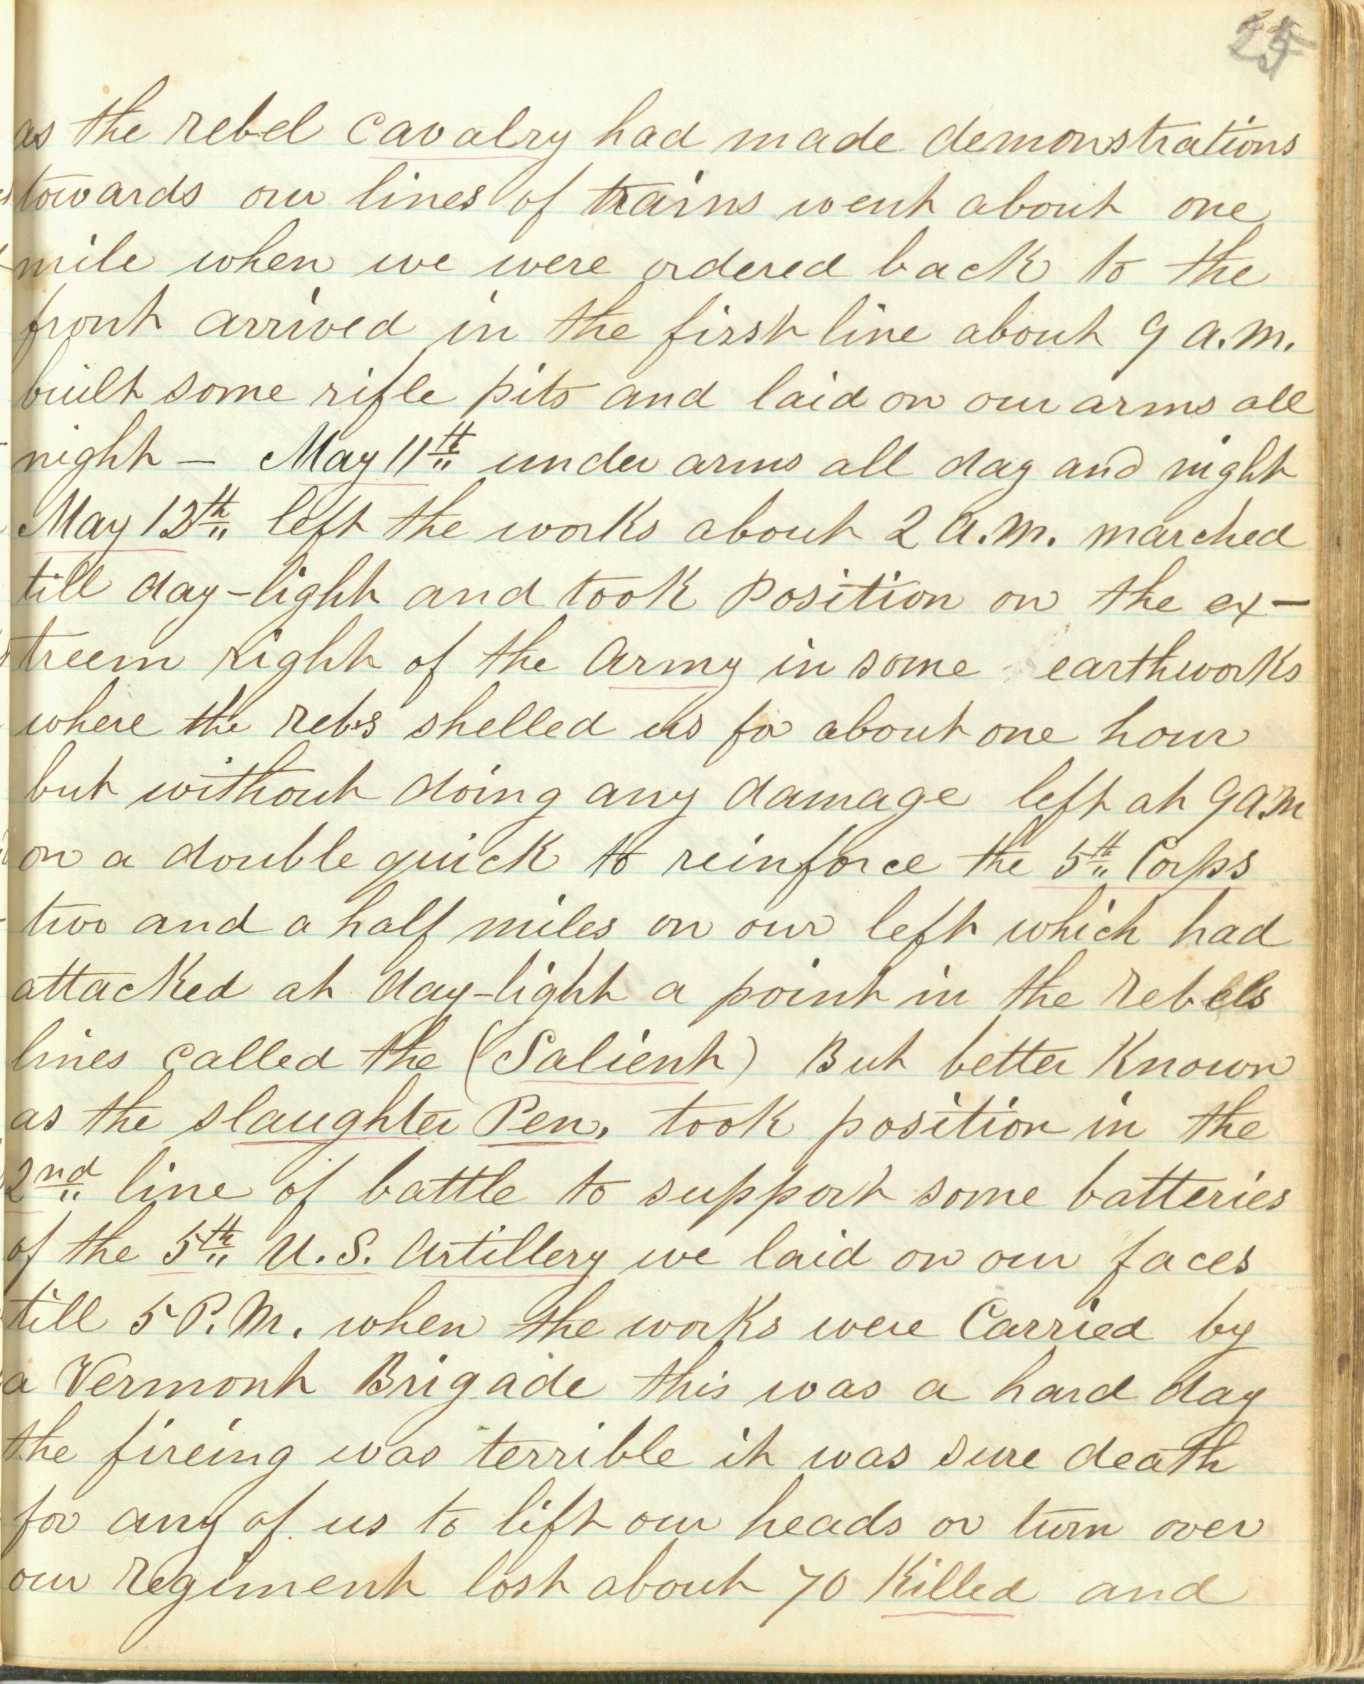 25
as the rebel cavalry had made demonstrations
towards our lines of trains went about one
mile when we were ordered back to the
front arrived in the first line about 9 a.m.
built some rifle pits and laid on our arms all
night – May 11th under arms all day and night
May 12th left the works about 2 a.m. marched
till day-light and took position on the ex-
treem right of the Army in some earthworks
where the rebs shelled us for about one hour
but without doing any damage left at 9 a.m
on a double quick to reinforce the 5th Corps
two and a half miles on our left which had
attacked at day-light a point in the rebels
lines called the (Salient) But better Known
as the slaughter Pen. took position in the
2nd line of battle to support some batteries
of the 5th U.S. Artillery we laid on our faces
till 5 P.M. when the works were Carried by
a Vermont Brigade this was a hard day
the fireing was terrible it was sure death
for any of us to lift our heads or turn over
our regiment lost about 70 Killed and